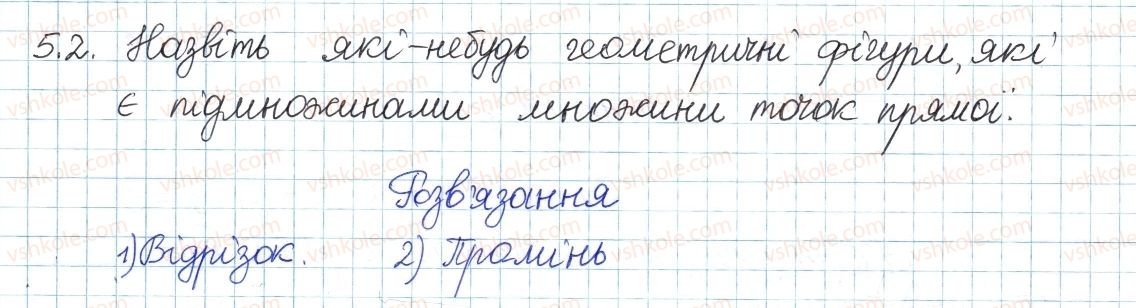 5.2. Назвіть які-небудь геометричні фігури, які
є підмножинами множини точок прямої.
Розв'язання
1) Відрізок. 2) Промінь